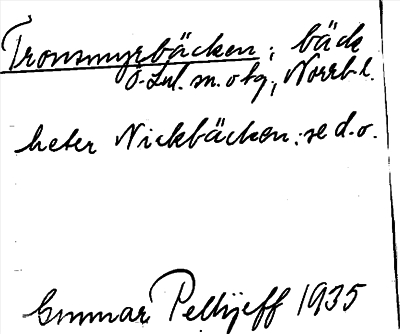 Tronsmyrbäcken; bäck
Ö-Lul. sn. o tg, Norrb.l.
heter Nickbäcken: se d.o.
Gunnar Pellijeff 1935